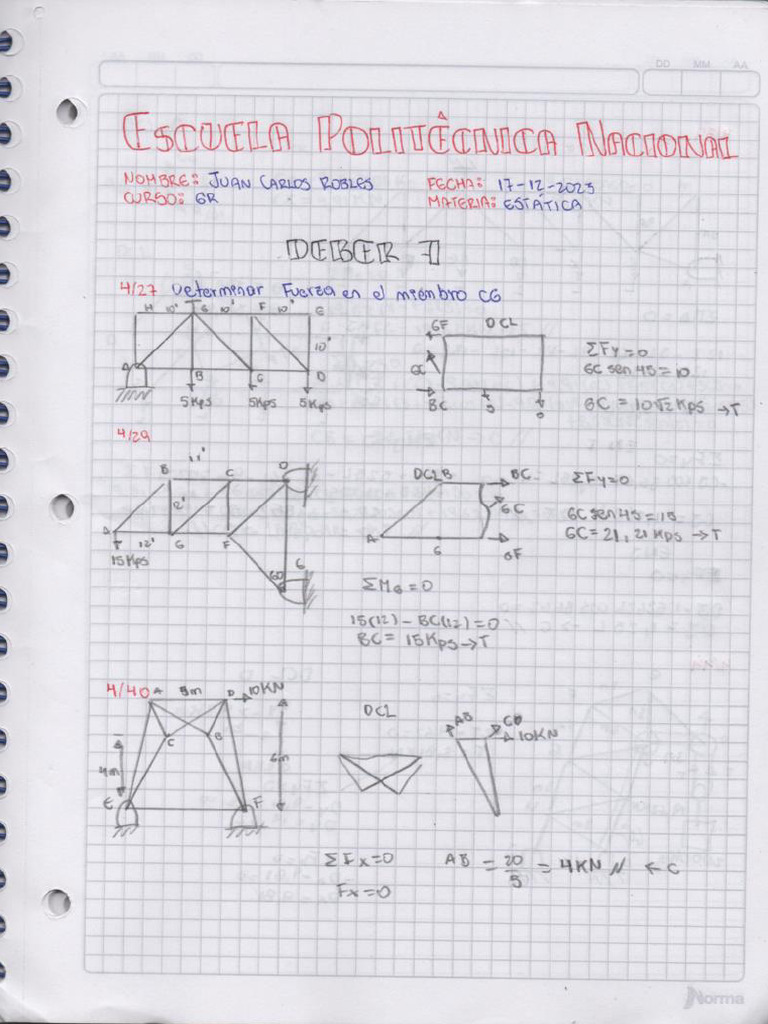 DD MM AA
ESCUELA POLITÉCNICA NACIONAL
NOMBRE: JUAN CARLOS ROBLES FECHA: 17-12-2023
CURSO: GR MATERIA: ESTÁTICA
DEBER 7
4/27 Determinar Fuerza en el miembro CG
H 10' G 10' F 10' E
10'
A B C D
5Kps 5Kps 5Kps
GF DCL
GC
BC 5 5
ΣFy=0
GC sen 45=10
GC = 10√2 Kps → T
4/29
B C D
12'
A 12' G F
15Kps
60
DCL B BC
GC
A G GF
ΣFy=0
GC sen 45=15
GC= 21,21 Kps → T
ΣMG=0
15(12) - BC(12)=0
BC= 15Kps → T
4/40 A 5m D 10KN
C B
4m 6m
E F
DCL
AB CD
10KN
ΣFx=0
Fx=0
AB = 20/5 = 4KN ← C
Norma